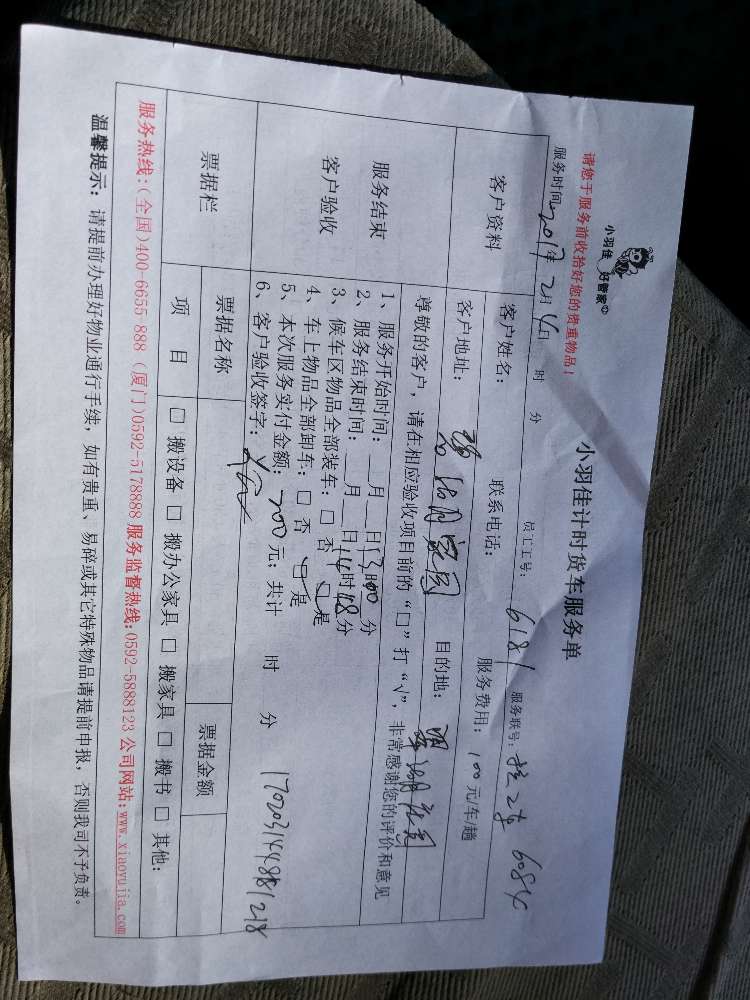 小羽佳 好管家
小羽佳计时货车服务单
请您于服务前收拾好您的贵重物品！
服务时间: 2017年 2月 4日 时 分 员工工号: 6181 服务联号: 6084
客户资料
客户姓名: 联系电话: 服务费用: 100元/车/趟
客户地址: 目的地:
服务结束
客户验收
尊敬的客户，请在相应验收项目前的“□”打“√”，非常感谢您的评价和意见
1、服务开始时间: __月__日13时00分
2、服务结束时间: __月__日14时48分
3、候车区物品全部装车: □ 否 □ 是
4、车上物品全部卸车: □ 否 □ 是
5、本次服务实付金额: 200元; 共计 时 分
6、客户验收签字:
票据栏 票据名称 票据金额
项 目 □ 搬设备 □ 搬办公家具 □ 搬家具 □ 搬书 □ 其他:
服务热线:(全国)400-6655-888 (厦门)0592-5178888 服务监督热线:0592-5888123 公司网站:www.xiaoyujia.com
温馨提示: 请提前办理好物业通行手续，如有贵重、易碎或其它特殊物品请提前申报，否则我司不予负责。